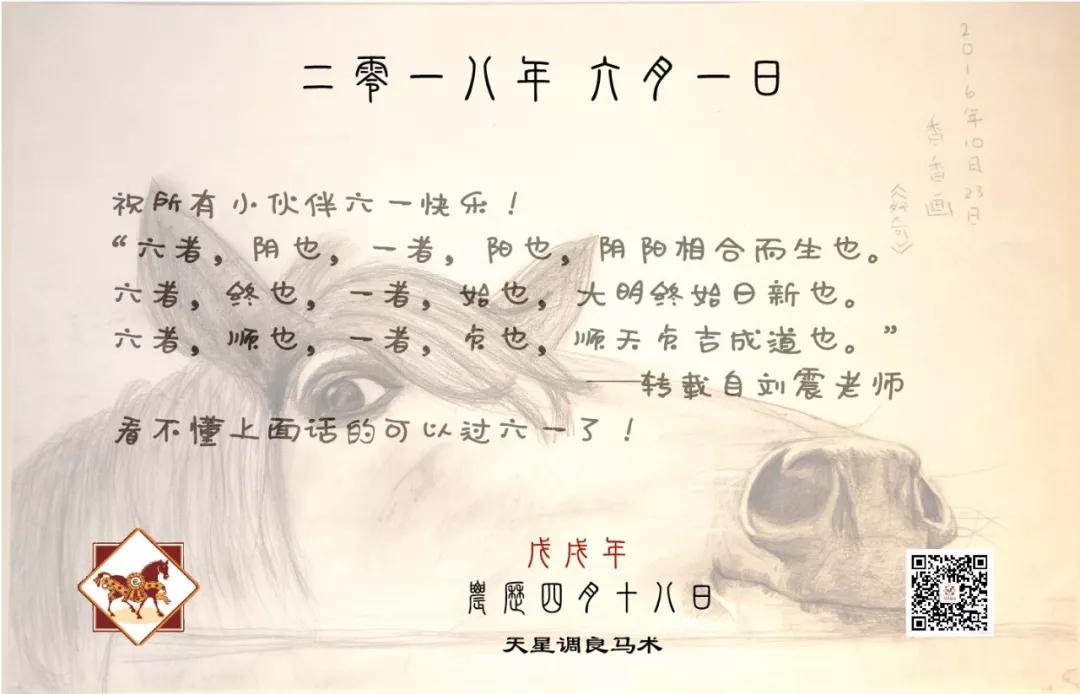 二零一八年 六月一日
2016年10月23日
香香画
祝所有小伙伴六一快乐!
“六者,阴也,一者,阳也,阴阳相合而生也。
六者,终也,一者,始也,大明终始日新也。
六者,顺也,一者,贞也,顺天贞吉成道也。”
——转载自刘震老师
看不懂上面话的可以过六一了!
戊戌年
農歷四月十八日
天星调良马术